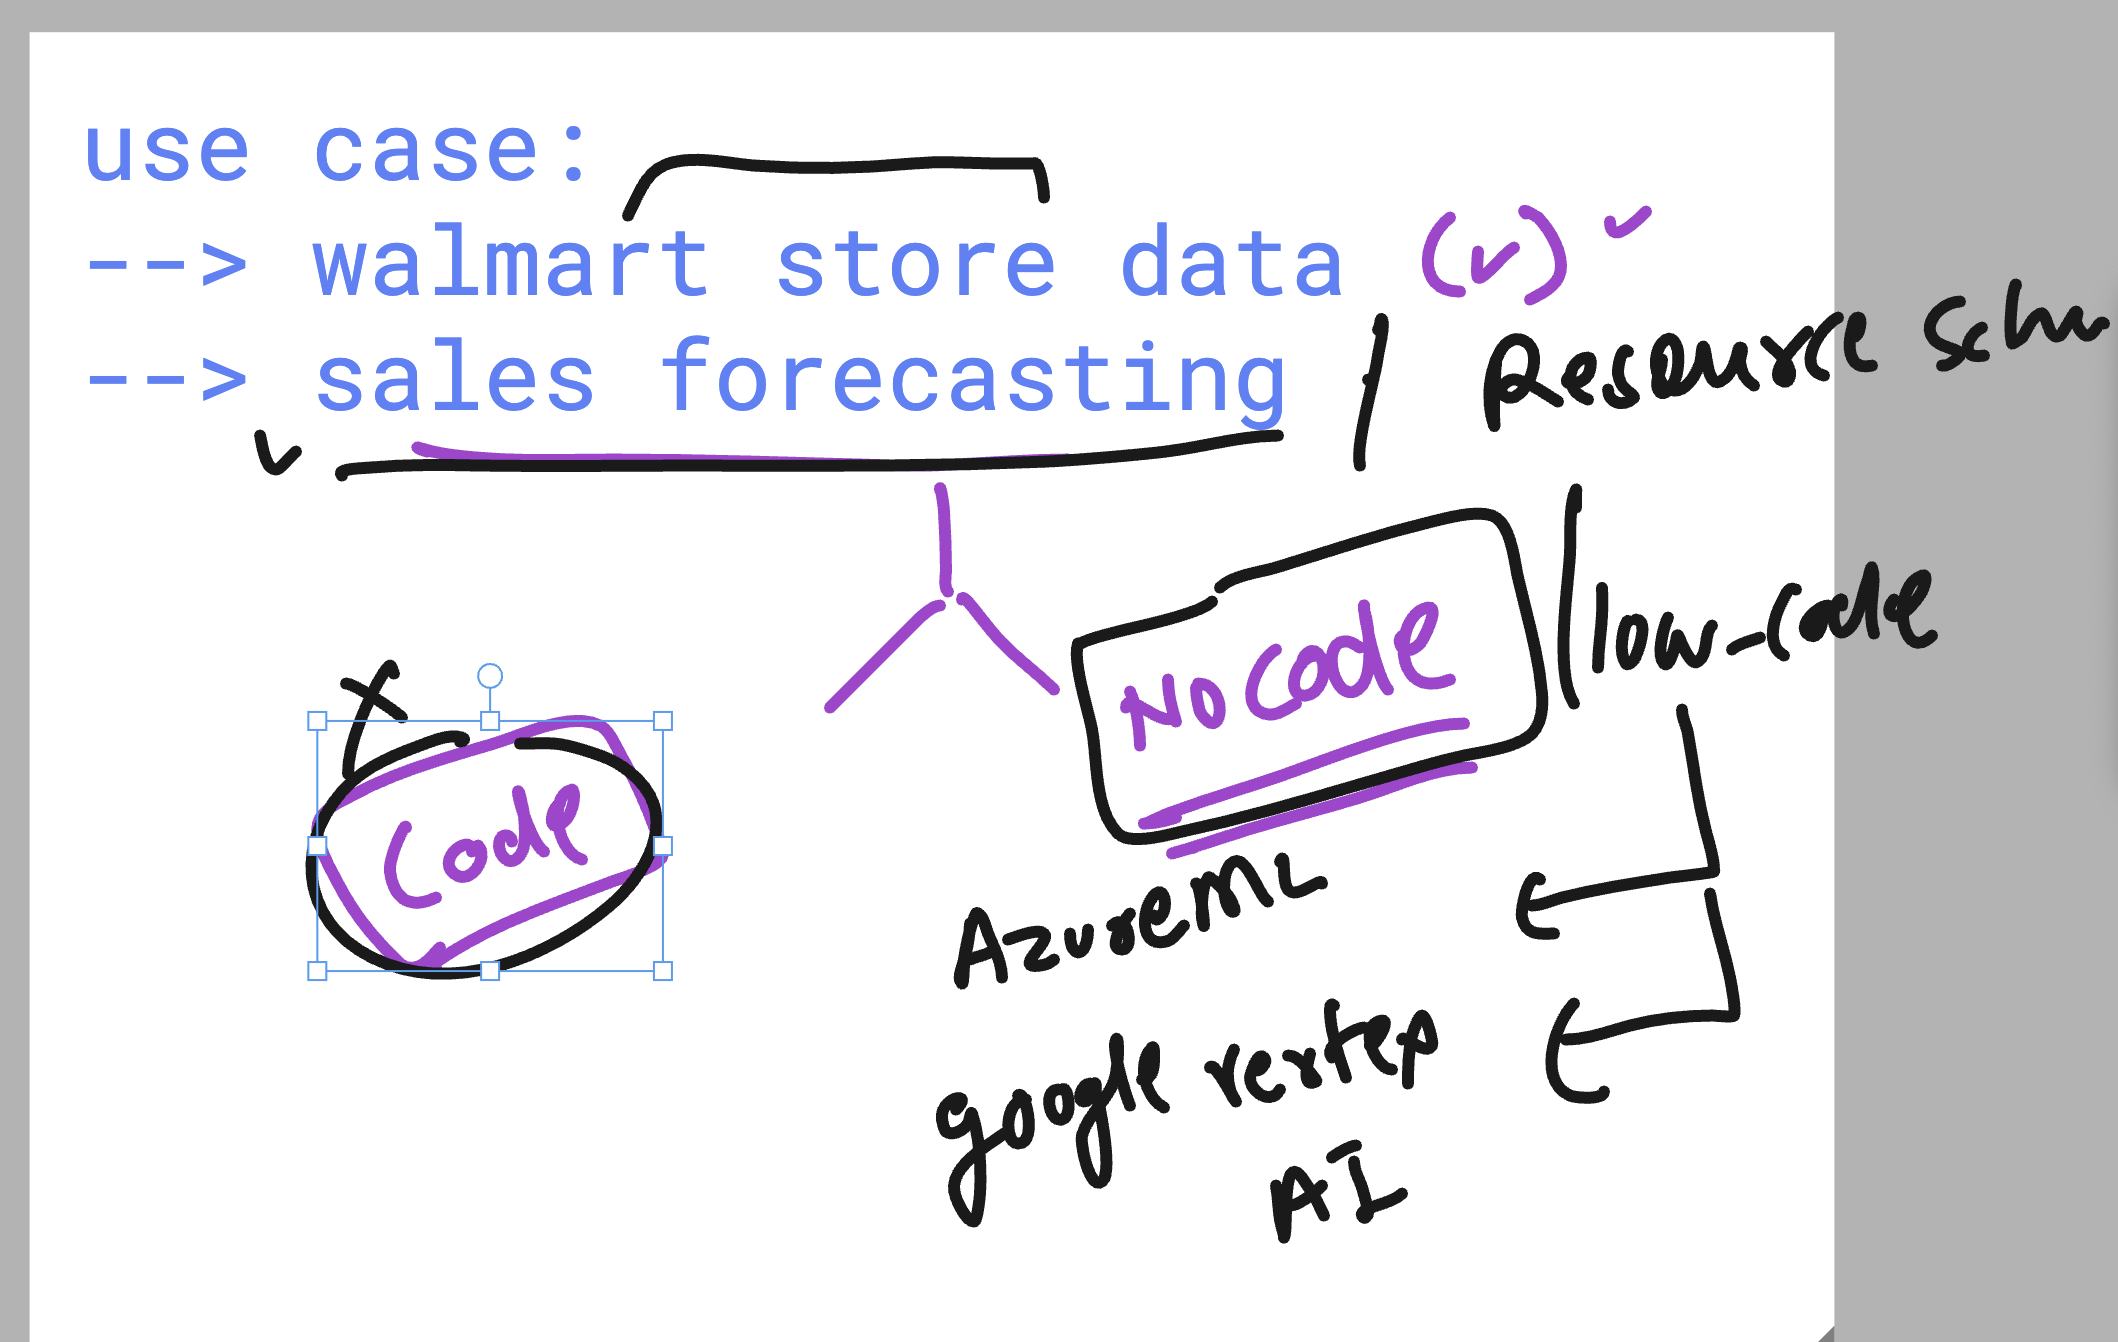 use case:
--> walmart store data (v)
--> sales forecasting
Resource
No Code
low-code
Code
AzureML
google vertex
AI